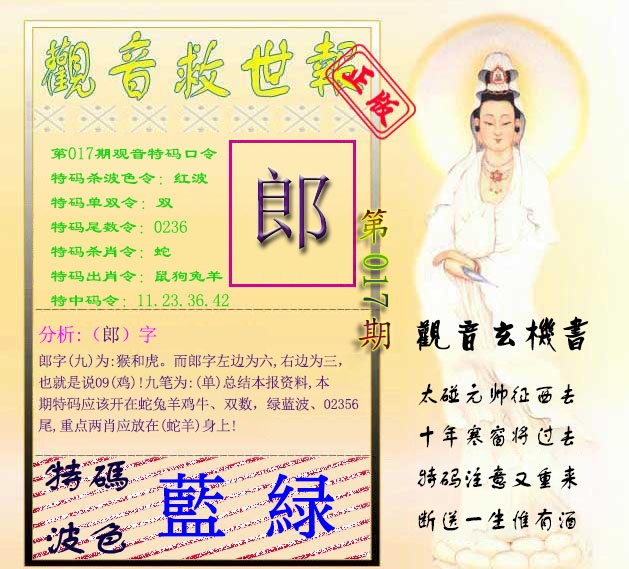 觀音救世報
正版
第017期观音特码口令
特码杀波色令：红波
特码单双令：双
特码尾数令：0236
特码杀肖令：蛇
特码出肖令：鼠狗兔羊
特中码令：11.23.36.42
郎
第017期
分析:（郎）字
郎字(九)为:猴和虎。而郎字左边为六,右边为三,
也就是说09(鸡)!九笔为:(单)总结本报资料,本
期特码应该开在蛇兔羊鸡牛、双数，绿蓝波、02356
尾,重点两肖应放在(蛇羊)身上!
特碼
波色
藍 緑
觀音玄機書
太碰元帅征西去
十年寒窗将过去
特码注意又重来
断送一生惟有酒